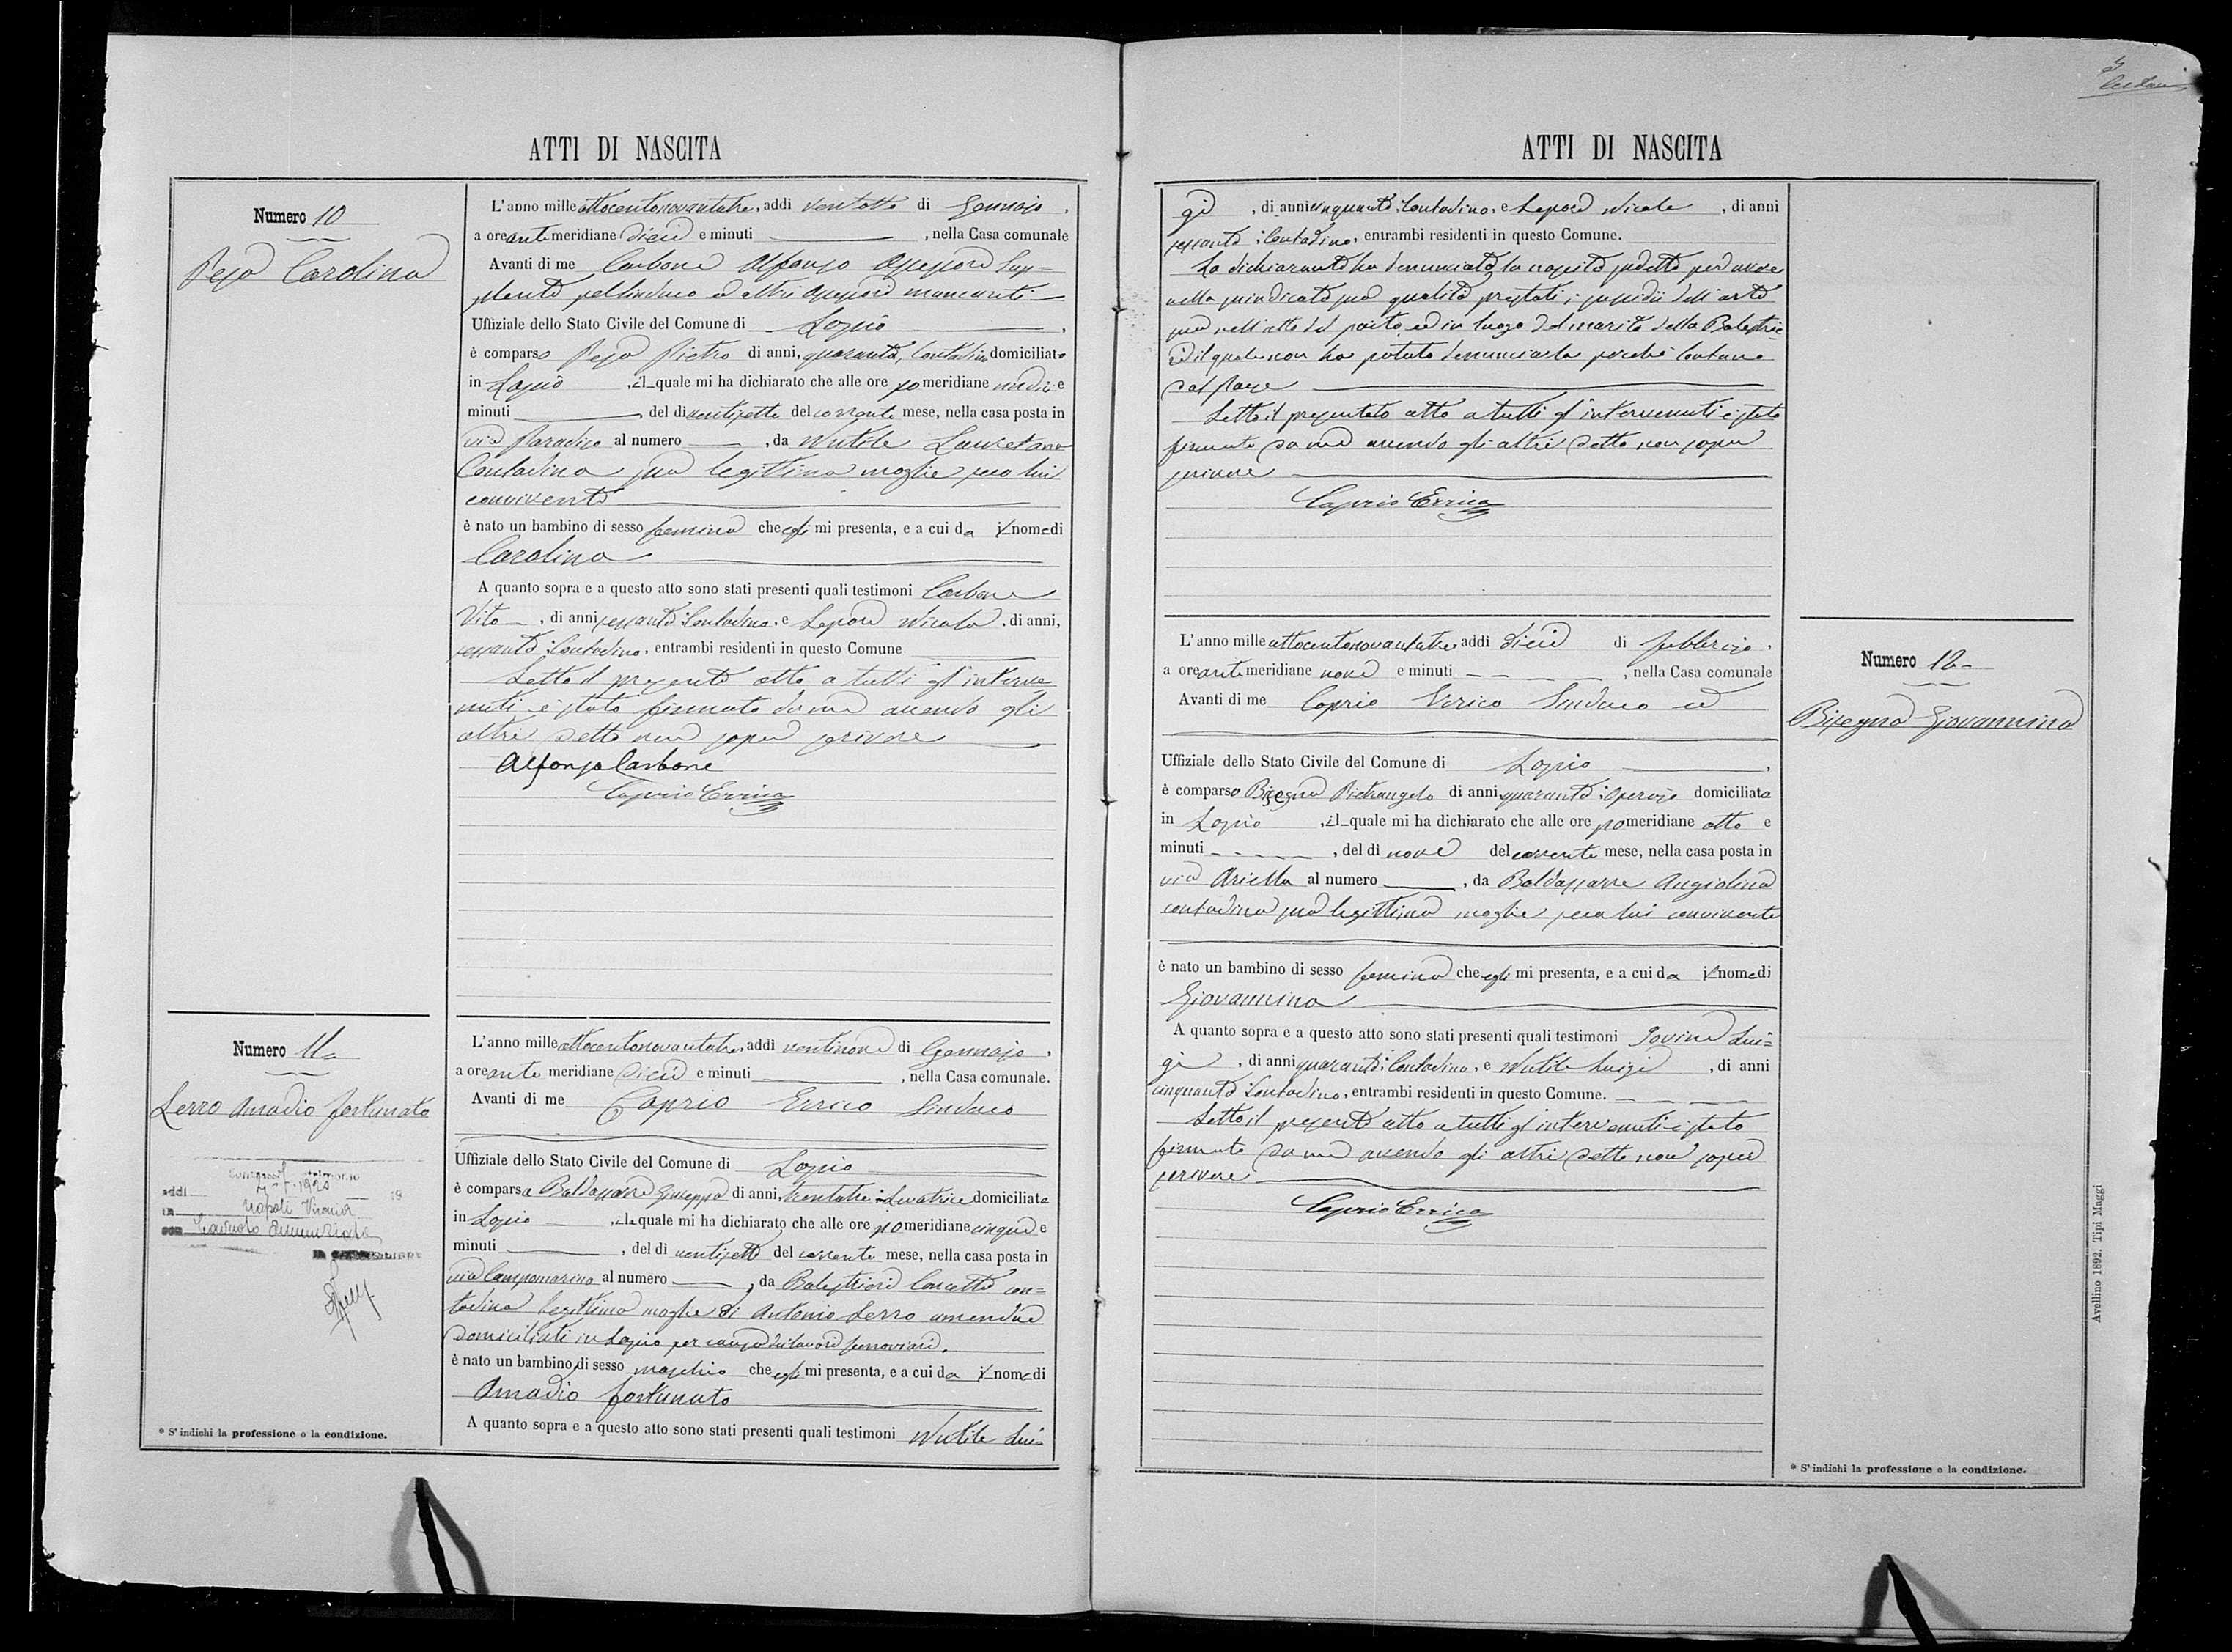 ATTI DI NASCITA
Numero 10
Pesa Carolina
L'anno mille ottocentonovantatre, addì ventotto di Gennajo,
a ore ante meridiane dieci e minuti , nella Casa comunale
Avanti di me Carbone Alfonso Assessore Sup=
plente pel Sindaco ed altri Assessori mancanti
Uffiziale dello Stato Civile del Comune di Lapio,
è comparso Pesa Pietro di anni, quaranta, Contadino domiciliato
in Lapio, il quale mi ha dichiarato che alle ore po meridiane undici e
minuti , del dì ventisette del corrente mese, nella casa posta in
via Paradiso al numero , da Nutile Lauretana
Contadina sua legittima moglie seco lui
convivente
è nato un bambino di sesso femina che egli mi presenta, e a cui da il nome di
Carolina
A quanto sopra e a questo atto sono stati presenti quali testimoni Carbone
Vito, di anni sessanta Contadino, e Lepore Nicola, di anni,
sessanta Contadino, entrambi residenti in questo Comune
Letto il presente atto a tutti gl'interve
nuti è stato firmato da me avendo gli
altri detto non saper scrivere
Alfonso Carbone
Caprio Errico
Numero 11
Serro Amadio Fortunato
addì 19
in Napoli Vicaria
con
L'anno mille ottocentonovantatre, addì ventinove di Gennajo,
a ore ante meridiane dieci e minuti , nella Casa comunale.
Avanti di me Caprio Errico Sindaco
Uffiziale dello Stato Civile del Comune di Lapio
è comparsa Baldassarre Giuseppa di anni, trentatre Levatrice domiciliata
in Lapio, la quale mi ha dichiarato che alle ore po meridiane cinque e
minuti , del dì ventisette del corrente mese, nella casa posta in
via Campomarino al numero , da Balestrieri Concetta con=
tadina legittima moglie di Antonio Serro amendue
domiciliati in Lapio per causa dei lavori ferroviari.
è nato un bambino di sesso maschio che egli mi presenta, e a cui da il nome di
Amadio Fortunato
A quanto sopra e a questo atto sono stati presenti quali testimoni Nutile Lui=
* S'indichi la professione o la condizione.
ATTI DI NASCITA
gi, di anni cinquanta Contadino, e Lepore Nicola, di anni
sessanta Contadino, entrambi residenti in questo Comune.
La dichiarante ha denunciato la nascita sudetta per avere
nella sumdicata sua qualità prestati i sussidii dell'arte
sua nell'atto del parto ed in luogo del marito della Balestrie
ri il quale non ha potuto denunciarla perchè lontano
dal paese
Letto il presentato atto a tutti gl'intervenuti è stato
firmato da me avendo gli altri detto non saper
scrivere
Caprio Errico
Numero 12
Bisegna Giovannina
L'anno mille ottocentonovantatre addì dieci di febbraio,
a ore ante meridiane nove e minuti , nella Casa comunale
Avanti di me Caprio Errico Sindaco ed
Uffiziale dello Stato Civile del Comune di Lapio,
è comparso Bisegna Pietrangelo di anni quaranta Operajo domiciliato
in Lapio, il quale mi ha dichiarato che alle ore po meridiane otto e
minuti , del dì nove del corrente mese, nella casa posta in
via Ariella al numero , da Baldassarre Angiolina
contadina sua legittima moglie seco lui convivente
è nato un bambino di sesso femina che egli mi presenta, e a cui da il nome di
Giovannina
A quanto sopra e a questo atto sono stati presenti quali testimoni Iovine Lui=
gi, di anni quaranta Contadino, e Nutile Luigi, di anni
cinquanta Contadino, entrambi residenti in questo Comune.
Letto il presente atto a tutti gl'intervenuti è stato
firmato da me avendo gli altri detto non saper
scrivere
Caprio Errico
* S'indichi la professione o la condizione.
Avellino 1892. Tipi Maggi